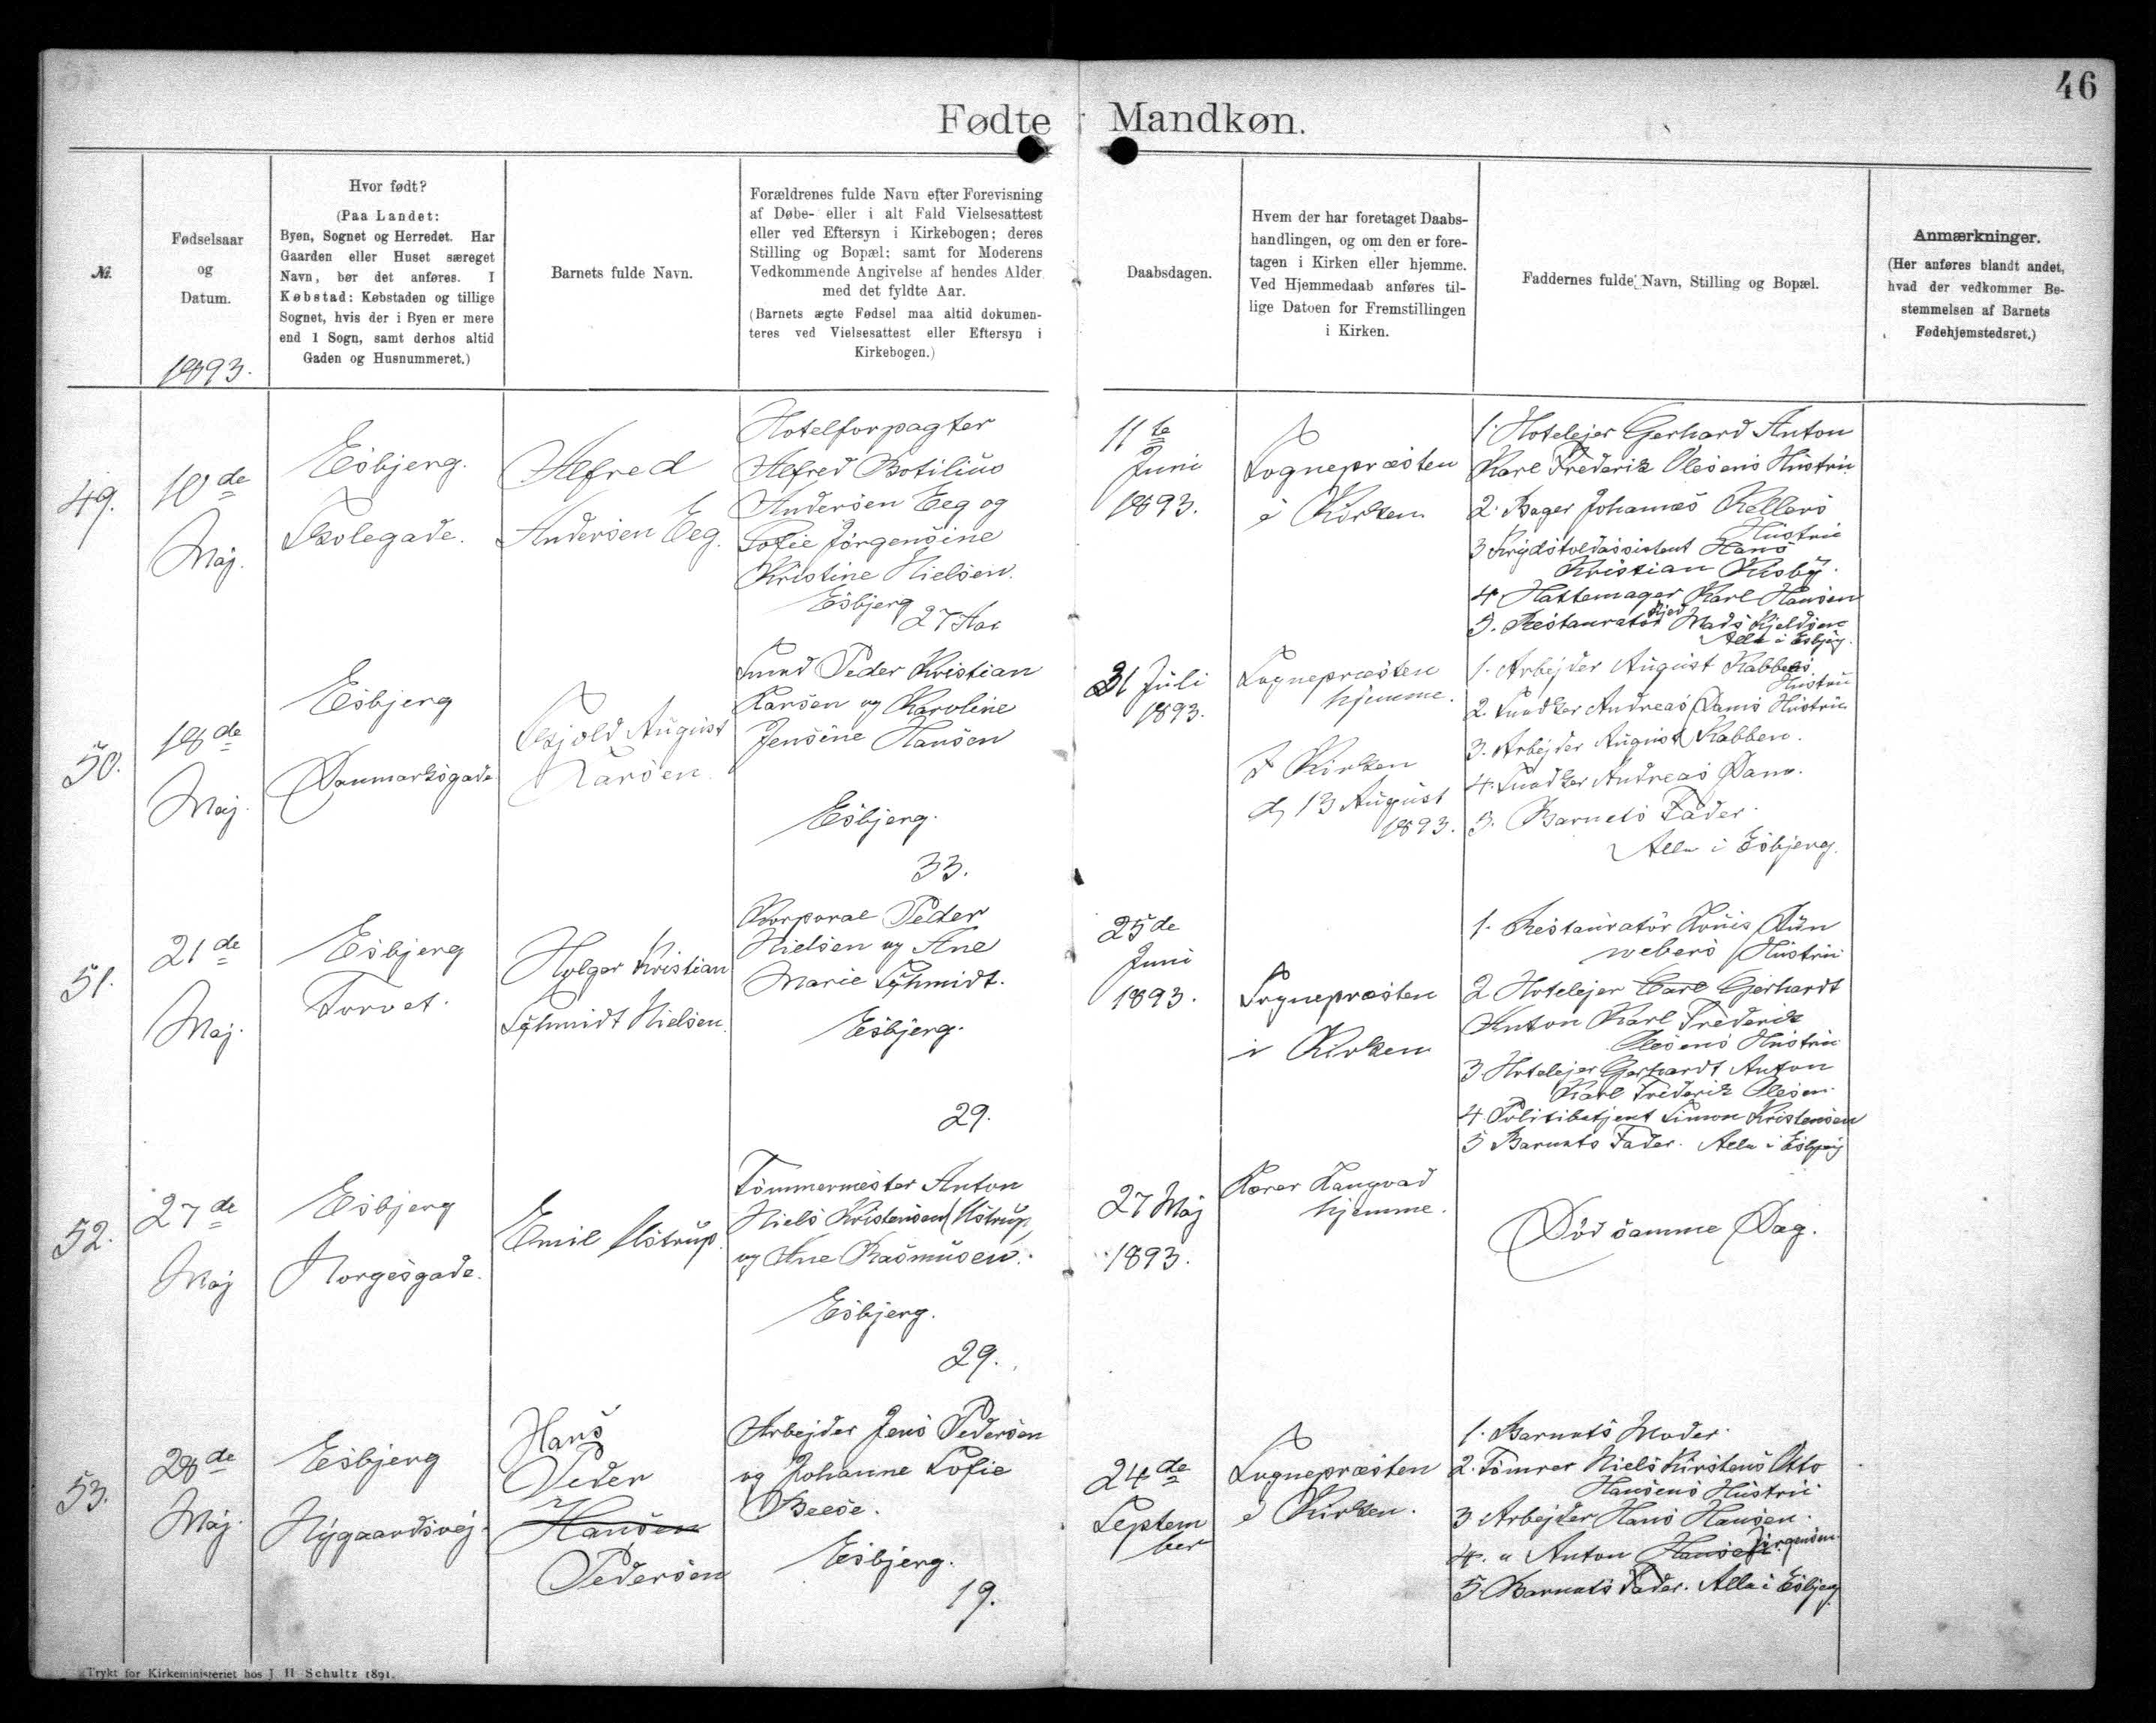 46
Fødte Mandkøn.
№
Fødselsaar
og
Datum.
1893.
Hvor født?
(Paa Landet:
Byen, Sognet og Herredet. Har
Gaarden eller Huset særeget
Navn, bør det anføres. I
Købstad: Købstaden og tillige
Sognet, hvis der i Byen er mere
end 1 Sogn, samt derhos altid
Gaden og Husnummeret.)
Barnets fulde Navn.
Forældrenes fulde Navn efter Forevisning
af Døbe- eller i alt Fald Vielsesattest
eller ved Eftersyn i Kirkebogen; deres
Stilling og Bopæl; samt for Moderens
Vedkommende Angivelse af hendes Alder
med det fyldte Aar.
(Barnets ægte Fødsel maa altid dokumen-
teres ved Vielsesattest eller Eftersyn i
Kirkebogen.)
Daabsdagen.
Hvem der har foretaget Daabs-
handlingen, og om den er fore-
tagen i Kirken eller hjemme.
Ved Hjemmedaab anføres til-
lige Datoen for Fremstillingen
i Kirken.
Faddernes fulde Navn, Stilling og Bopæl.
Anmærkninger.
(Her anføres blandt andet,
hvad der vedkommer Be-
stemmelsen af Barnets
Fødehjemstedsret.)
49.
10de
Maj.
Esbjerg.
Skolegade.
Alfred
Andersen Eeg.
Hotelforpagter
Alfred Botilius
Andersen Eeg og
Sofie Jørgensine
Kristine Nielsen.
Esbjerg
27 Aar
11te
Juni
1893.
Sognepræsten
i Kirken
1. Hotelejer Gerhard Anton
Karl Frederik Olesens Hustru
2. Bager Johannes Kellers
Hustru
3 Krydstoldassistent Hans
Kristian
4 Hattemager Karl Hansen
5. Restauratør Mads Kjeldsen
Alle i Esbjerg.
50.
18de
Maj.
Esbjerg
Danmarksgade
Skjold August
Larsen
Smed Peder Kristian
Larsen og Karoline
Jensine Hansen
Esbjerg.
33.
31 Juli
1893.
Sognepræsten
hjemme.
I Kirken
d, 13 August
1893.
1. Arbejder August Rabbens
Hustru
2. Snedker Andreas Dams Hustru
3. Arbejder August Rabben.
4. Snedker Andreas Dam.
5. Barnets Fader.
Alle i Esbjerg.
51.
21de
Maj.
Esbjerg
Torvet.
Holger Kristian
Schmidt Nielsen.
Korporal Peder
Nielsen og Ane
Marie Schmidt.
Esbjerg.
29.
25de
Juni
1893.
Sognepræsten
i Kirken
1. Restauratør Louis Dün
webers Hustru
2 Hotelejer Carl Gjerhardt
Anton Karl Frederik
Olesens Hustru
3 Hotelejer Gerhardt Anton
Karl Frederik Olesen.
4 Politibetjent Simon Kristensen
5 Barnets Fader. Alle i Esbjerg
52.
27de
Maj
Esbjerg
Norgesgade.
Emil Ustrup.
Tømmermester Anton
Niels Kristensen Ustrup,
og Ane Rasmusen.
Esbjerg.
29.
27 Maj
1893.
Lærer Langvad
hjemme.
Død samme Dag.
53.
28de
Maj.
Esbjerg
Nygaardsvej.
Hans
Peder
Hansen
Pedersen
Arbejder Jens Pedersen
og Johanne Sofie
Beese.
Esbjerg.
19.
24de
Septem
ber
Sognepræsten
i Kirken.
1. Barnets Moder.
2. Tømrer Niels Kirstens Otto
Hansens Hustru
3 Arbejder Hans Hansen.
4. " Anton Hansen Jørgensen.
5. Barnets Fader. Alle i Esbjerg
Trykt for Kirkeministeriet hos J. H. Schultz 1891.